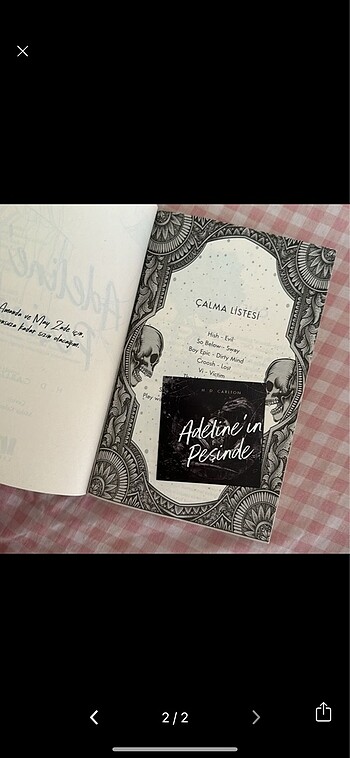 Amanda ve May Zade için,
kadar sizin olacağım.
ÇALMA LİSTESİ
Hish - Evil
So Below - Sway
Boy Epic - Dirty Mind
Croosh - Lost
Vi - Victim
Play
H. D. CARLTON
Adeline'in
Peşinde
2/2